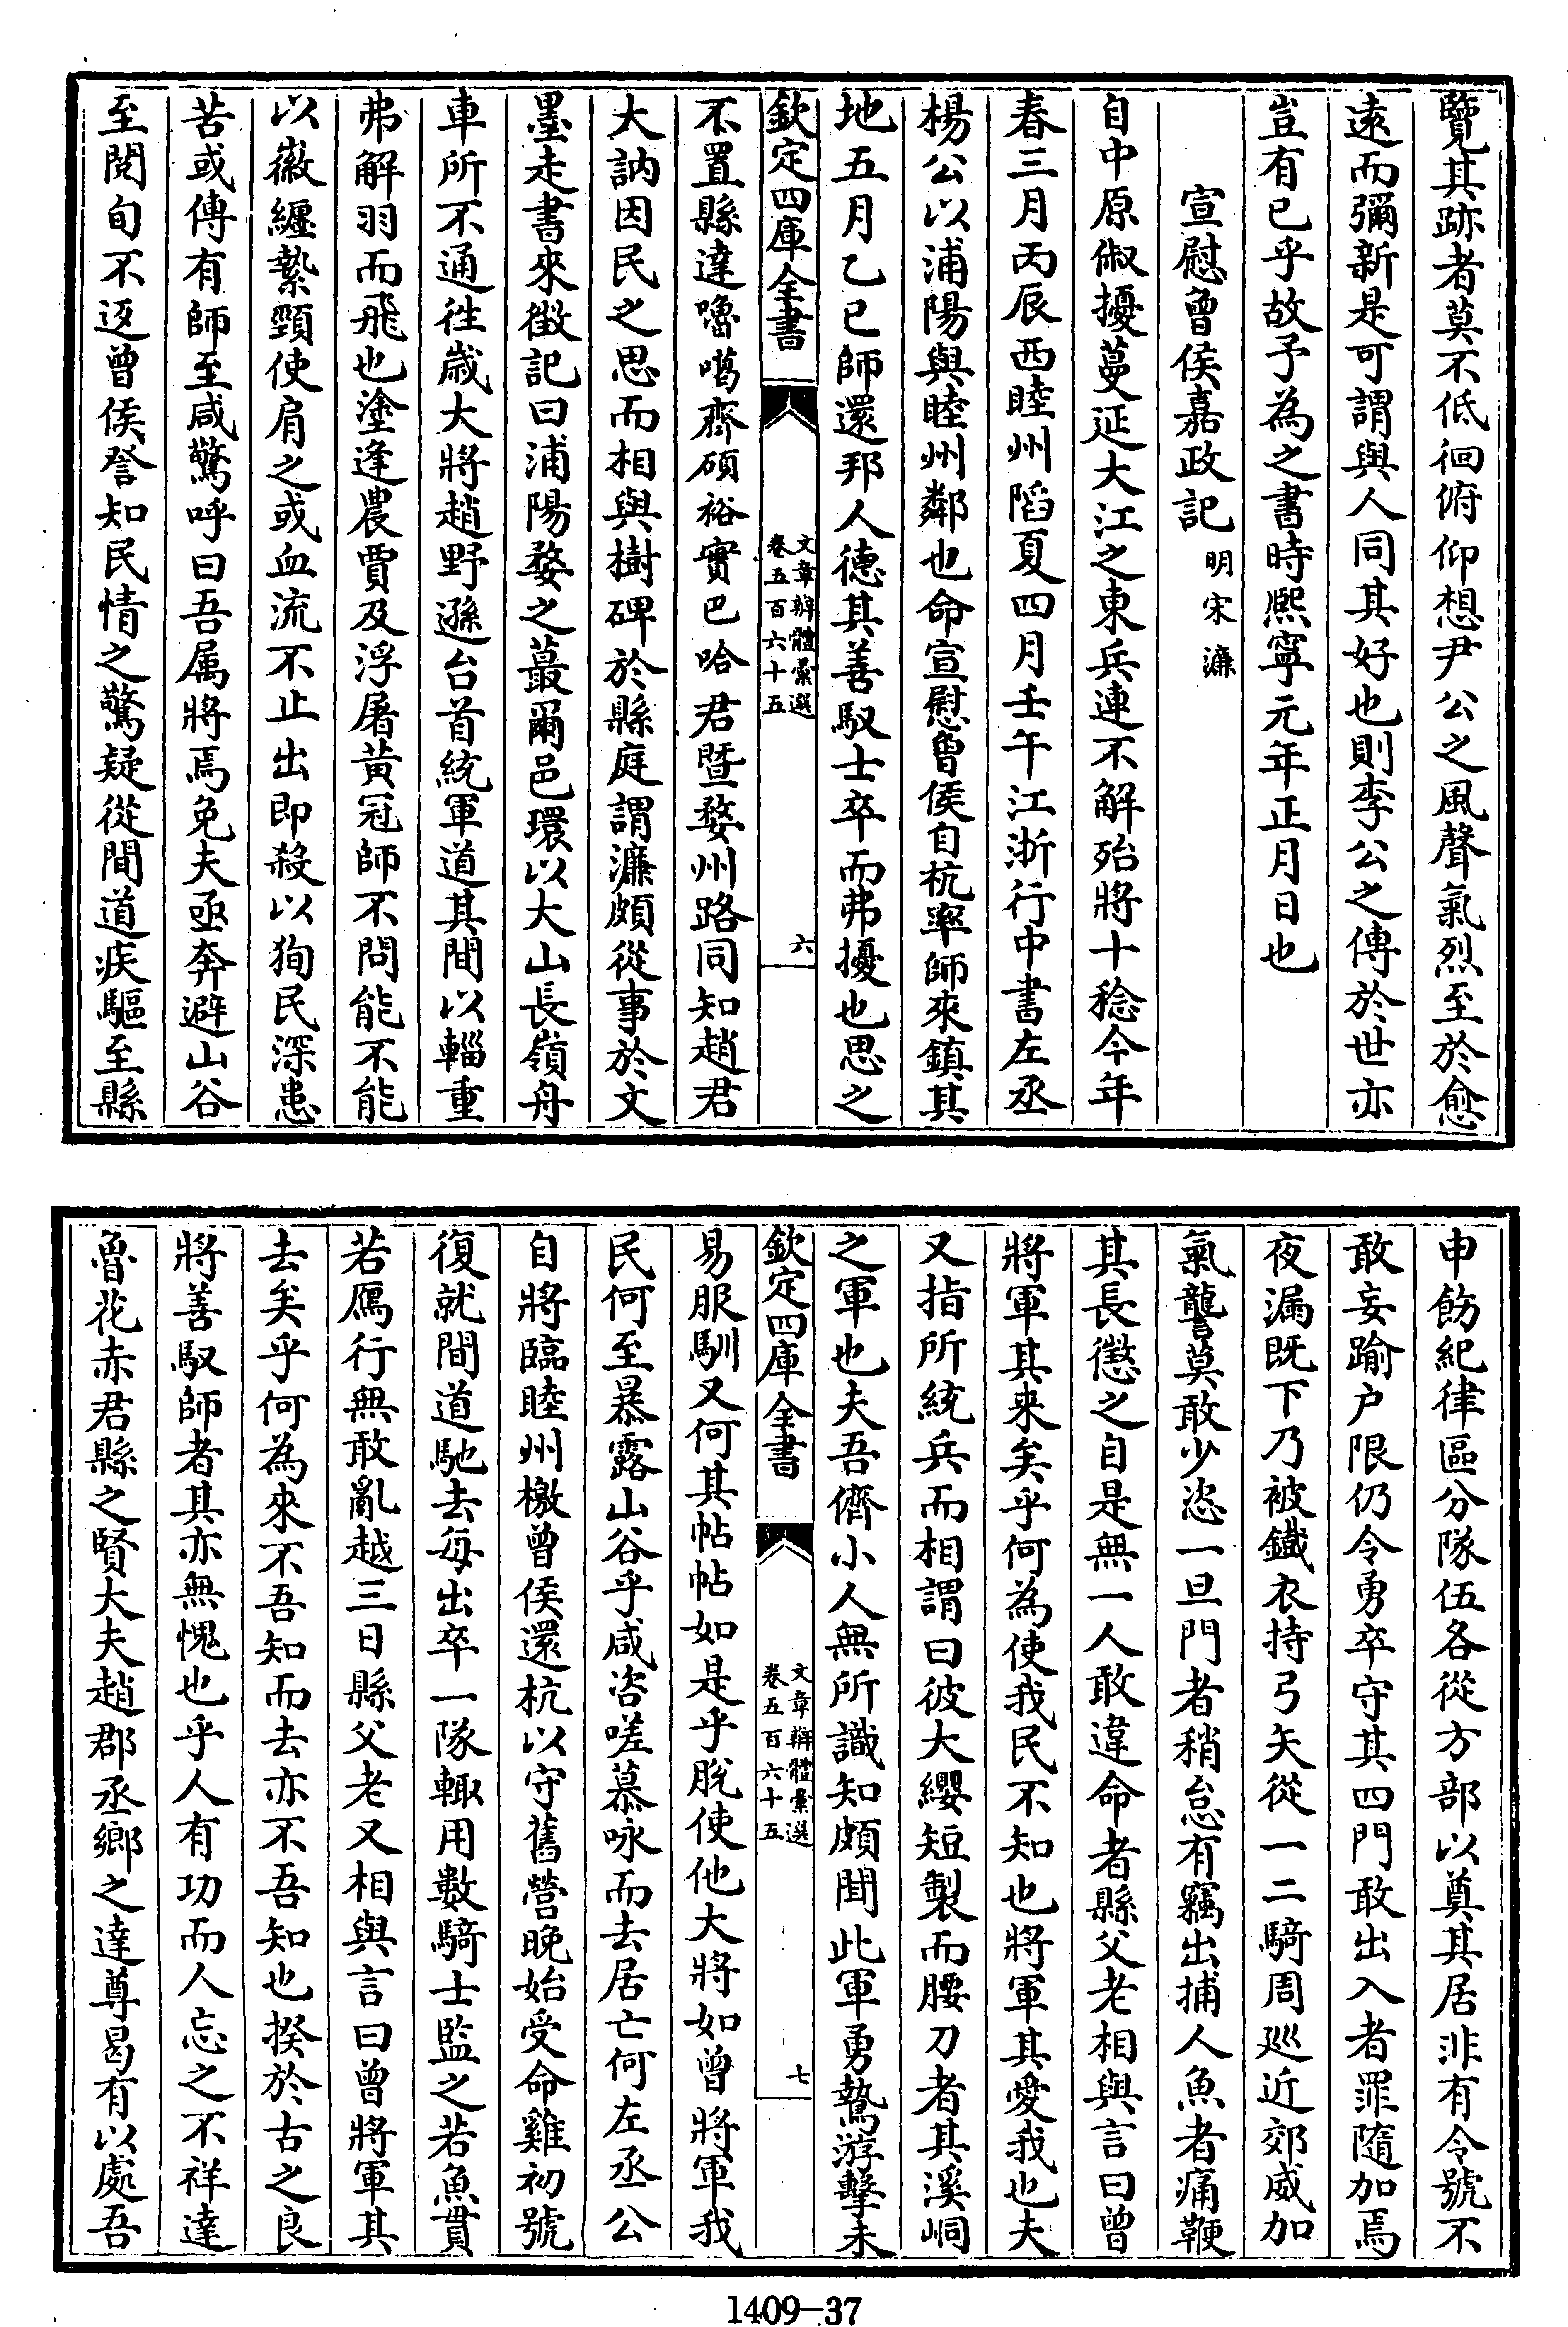 覽其跡者莫不低徊俯仰想尹公之風聲氣烈至於愈
遠而彌新是可謂與人同其好也則李公之傳於世亦
豈有已乎故予為之書時熙寧元年正月日也
宣慰曾侯嘉政記 明宋濂
自中原俶擾蔓延大江之東兵連不解殆將十稔今年
春三月丙辰西睦州陷夏四月壬午江浙行中書左丞
楊公以浦陽與睦州鄰也命宣慰曾侯自杭率師來鎮其
地五月乙巳師還邦人德其善馭士卒而弗擾也思之
欽定四庫全書
文章辨體彙選
卷五百六十五
六
不置縣達嚕噶齊碩裕實巴哈君暨婺州路同知趙君
大訥因民之思而相與樹碑於縣庭謂濂頗從事於文
墨走書來徵記曰浦陽婺之蕞爾邑環以大山長嶺舟
車所不通徃歲大將趙野遜台首統軍道其間以輜重
弗解羽而飛也塗逢農賈及浮屠黃冠師不問能不能
以徽纏縶頸使肩之或血流不止出即殺以狥民深患
苦或傳有師至咸驚呼曰吾属將焉免夫亟奔避山谷
至閱旬不返曾侯詧知民情之驚疑從間道疾驅至縣
申飭紀律區分隊伍各從方部以奠其居非有令號不
敢妄踰户限仍令勇卒守其四門敢出入者罪隨加焉
夜漏既下乃被鐵衣持弓矢從一二騎周廵近郊威加
氣讋莫敢少恣一旦門者稍怠有竊出捕人魚者痛鞭
其長懲之自是無一人敢違命者縣父老相與言曰曾
將軍其来矣乎何為使我民不知也將軍其愛我也夫
又指所統兵而相謂曰彼大纓短製而腰刀者其溪峒
之軍也夫吾儕小人無所識知頗聞此軍勇鷙游擊未
欽定四庫全書
文章辨體彙選
卷五百六十五
七
易服馴又何其帖帖如是乎脫使他大將如曾將軍我
民何至暴露山谷乎咸咨嗟慕咏而去居亡何左丞公
自將臨睦州檄曾侯還杭以守舊營晚始受命雞初號
復就間道馳去每出卒一隊輙用數騎士監之若魚貫
若鴈行無敢亂越三日縣父老又相與言曰曾將軍其
去矣乎何為來不吾知而去亦不吾知也揆於古之良
將善馭師者其亦無愧也乎人有功而人忘之不祥達
魯花赤君縣之賢大夫趙郡丞鄉之達尊曷有以處吾
1409—37